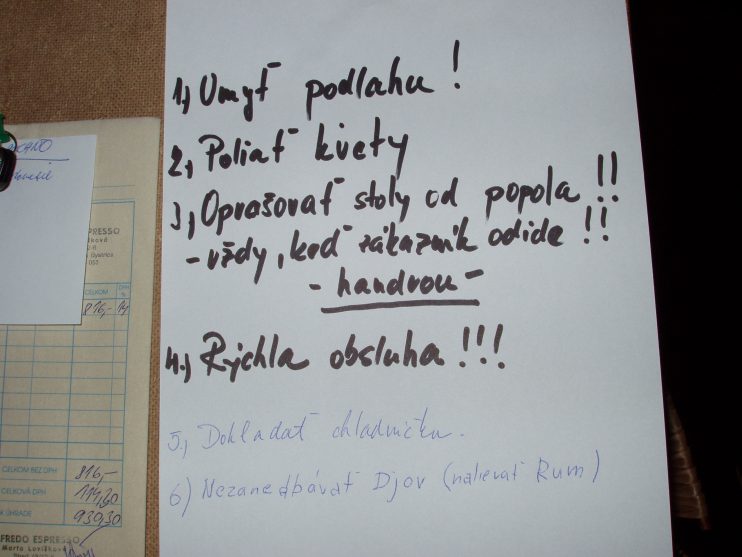 1, Umyť podlahu!
2, Poliať kvety
3, Oprašovať stoly od popola!!
- vždy, keď zákazník odíde!!
- handrou -
4., Rýchla obsluha!!!
5, Dokladať chladničku.
6) Nezanedbávať Djov (nalievať Rum)
PRESSO
CELKOM
DPH
%
816,-
14
CELKOM BEZ DPH
816,-
CELKOVÁ DPH
114,20
K ÚHRADE
930,30
FREDO ESPRESSO
Marta Lovíšková